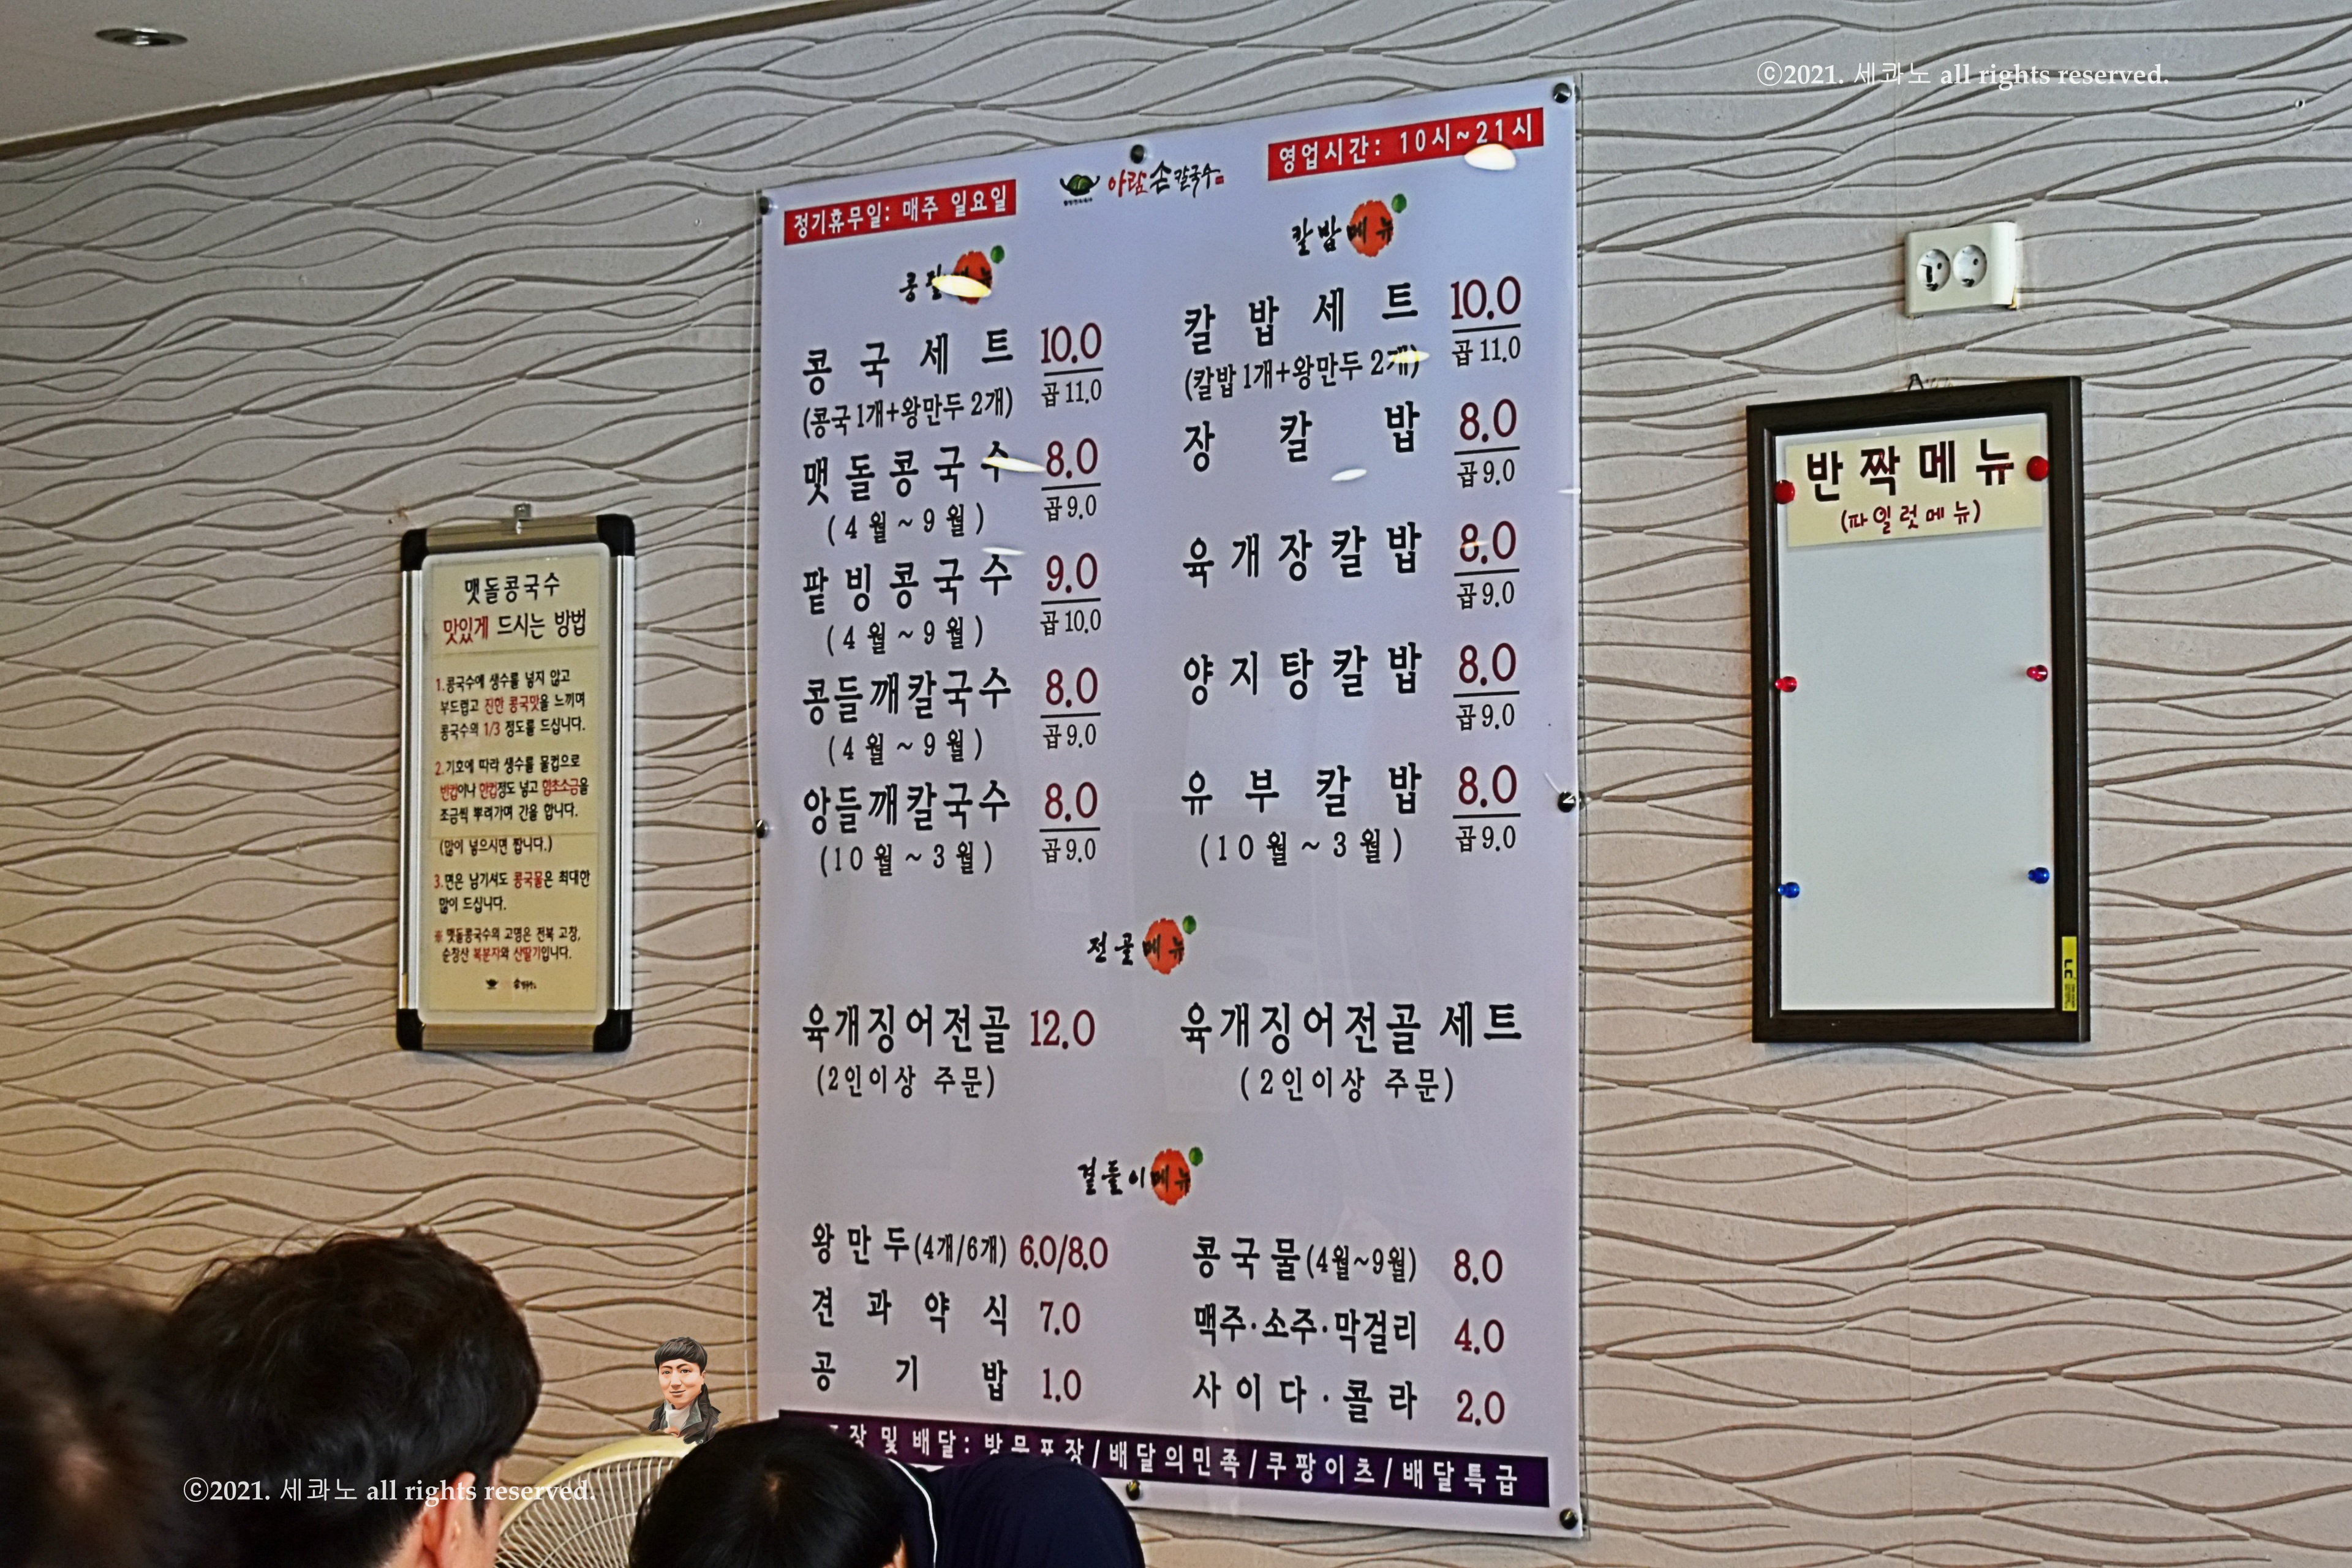 ⓒ2021. 세콰노 all rights reserved.
정기휴무일: 매주 일요일
아람손칼국수
영업시간: 10시~21시
콩국세트 10.0
곱 11.0
(콩국 1개+왕만두 2개)
맷돌콩국수 8.0
곱 9.0
(4월~9월)
팥빙콩국수 9.0
곱 10.0
(4월~9월)
콩들깨칼국수 8.0
곱 9.0
(4월~9월)
앙들깨칼국수 8.0
곱 9.0
(10월~3월)
칼밥메뉴
칼밥세트 10.0
곱 11.0
(칼밥 1개+왕만두 2개)
장칼밥 8.0
곱 9.0
육개장칼밥 8.0
곱 9.0
양지탕칼밥 8.0
곱 9.0
유부칼밥 8.0
곱 9.0
(10월~3월)
전골메뉴
육개징어전골 12.0
(2인이상 주문)
육개징어전골 세트
(2인이상 주문)
곁들이메뉴
왕만두(4개/6개) 6.0/8.0
견과약식 7.0
공기밥 1.0
콩국물(4월~9월) 8.0
맥주·소주·막걸리 4.0
사이다·콜라 2.0
및 배달: 방문포장/배달의민족/쿠팡이츠/배달특급
맷돌콩국수
맛있게 드시는 방법
1.콩국수에 생수를 넣지 않고
부드럽고 진한 콩국맛을 느끼며
콩국수의 1/3 정도를 드십니다.
2.기호에 따라 생수를 물컵으로
반컵이나 한컵정도 넣고 함초소금을
조금씩 뿌려가며 간을 합니다.
(많이 넣으시면 짭니다.)
3.면은 남기셔도 콩국물은 최대한
많이 드십니다.
※ 맷돌콩국수의 고명은 전북 고창,
순창산 복분자와 산딸기입니다.
반짝메뉴
(파일럿메뉴)
ⓒ2021. 세콰노 all rights reserved.